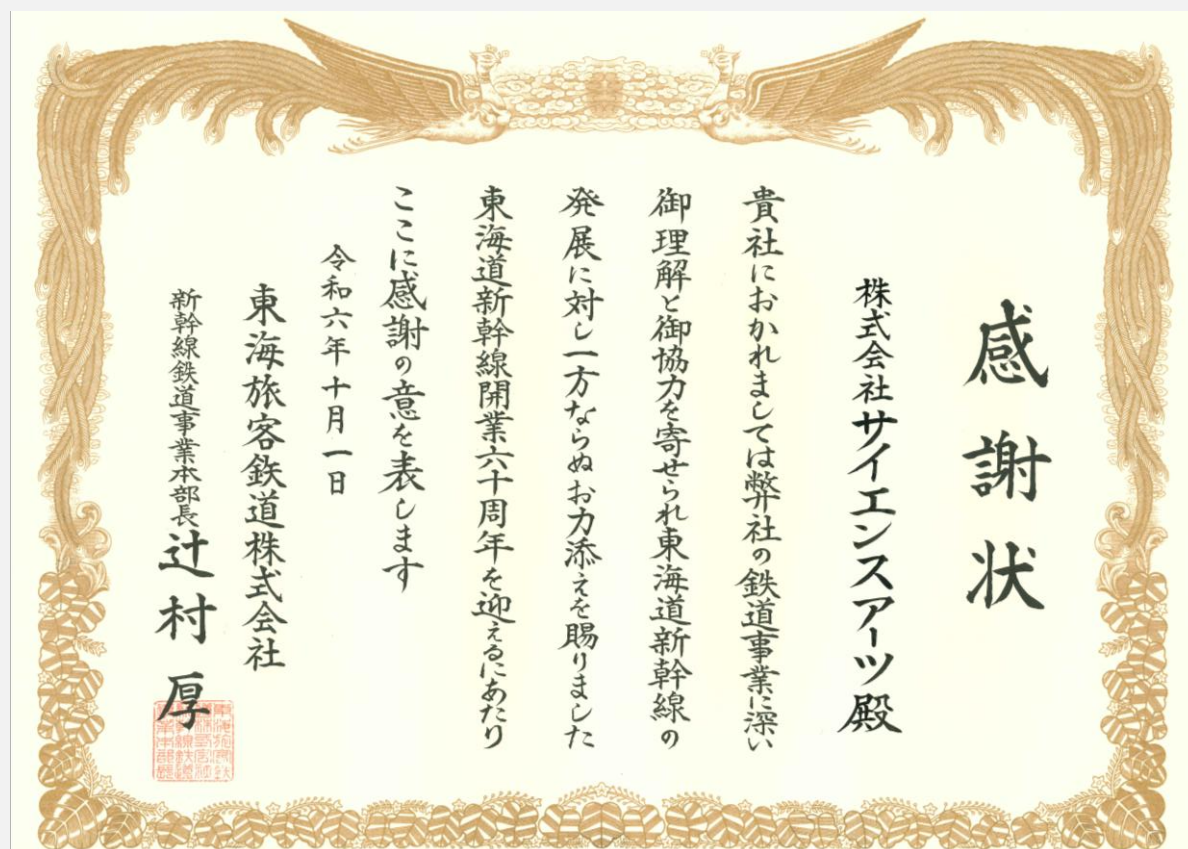 感謝状
株式会社サイエンスアーツ殿
貴社におかれましては弊社の鉄道事業に深い
御理解と御協力を寄せられ東海道新幹線の
発展に対し一方ならぬお力添えを賜りました
東海道新幹線開業六十周年を迎えるにあたり
ここに感謝の意を表します
令和六年十月一日
東海旅客鉄道株式会社
新幹線鉄道事業本部長 辻村厚